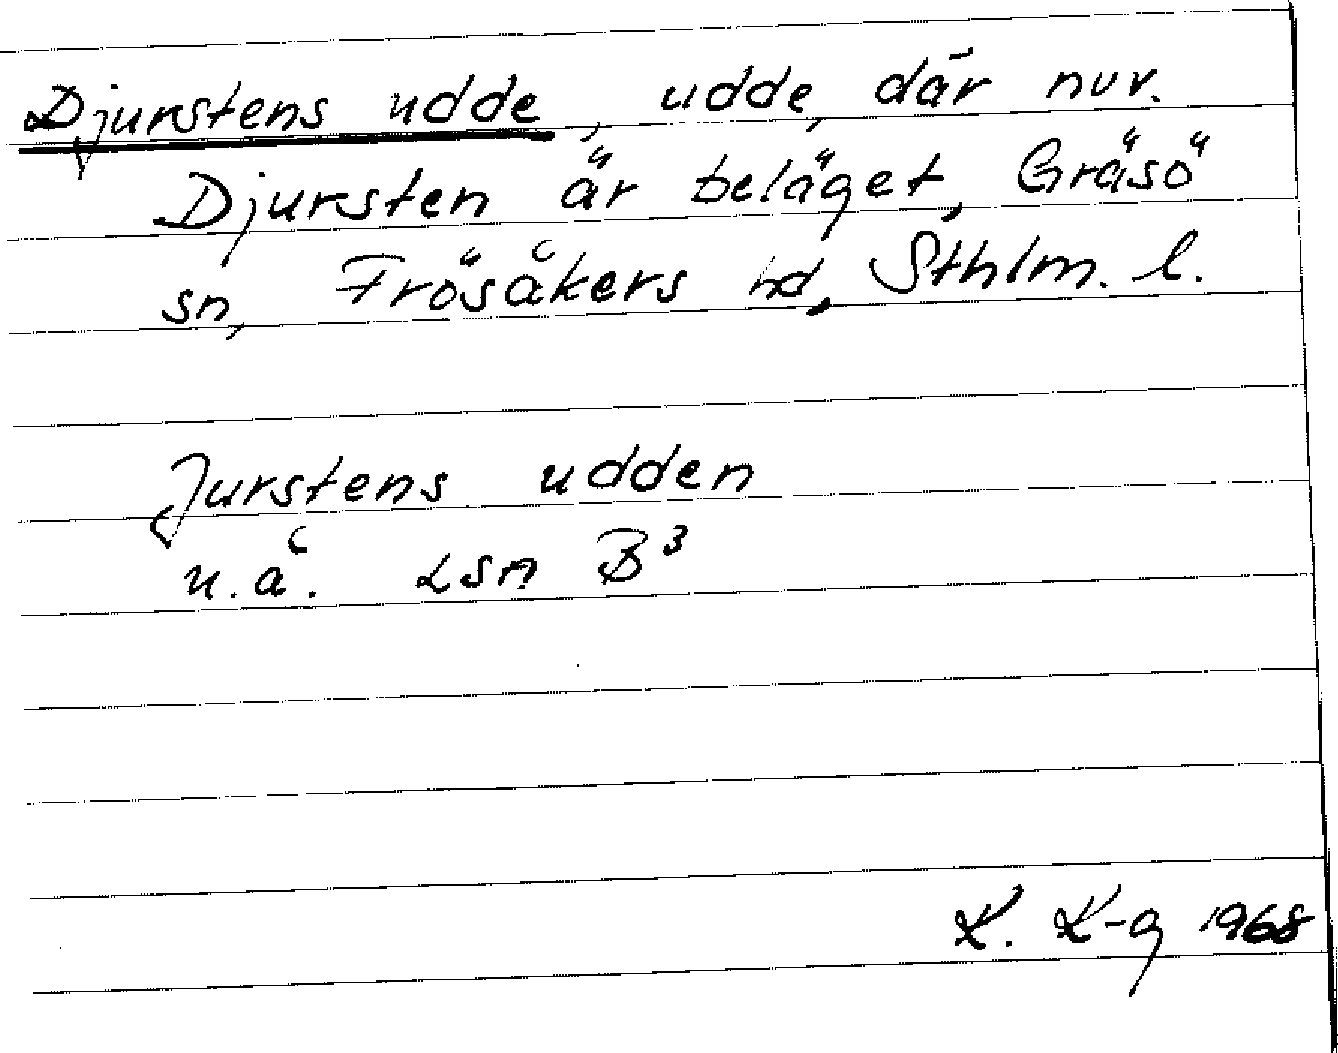 Djurstens udde, udde, där nuv.
Djursten är beläget, Gräsö
sn, Frösåkers hd, Sthlm. l.
Jurstens udden
u.å. LSA B³
K. K-g 1968